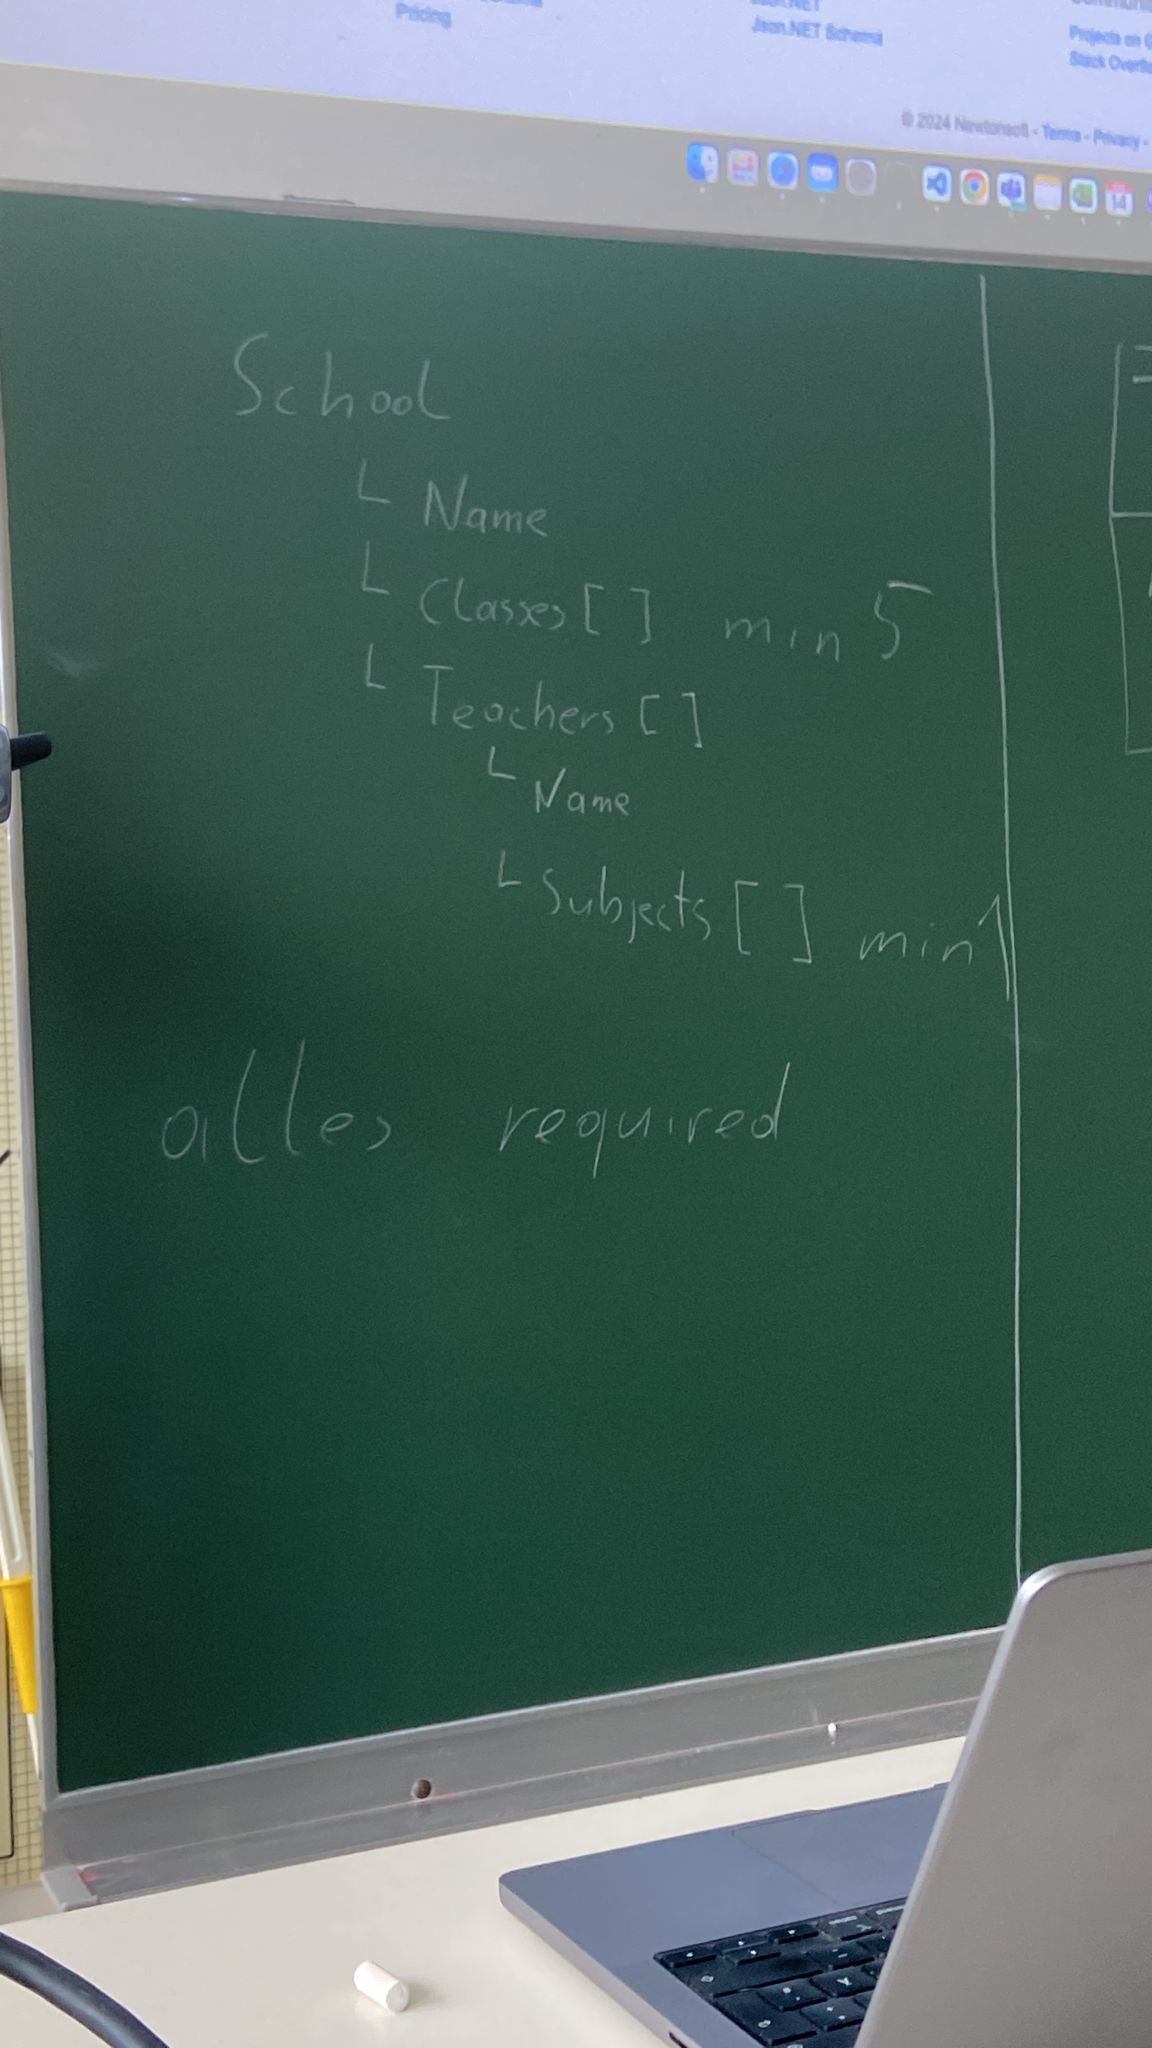 Pricing
Json.NET
Json.NET Schema
Projects on
Stack Overfl
© 2024 Newtonsoft - Terms - Privacy -
14
School
└ Name
└ Classes [ ] min 5
└ Teachers [ ]
└ Name
└ Subjects [ ] min 1
alles required